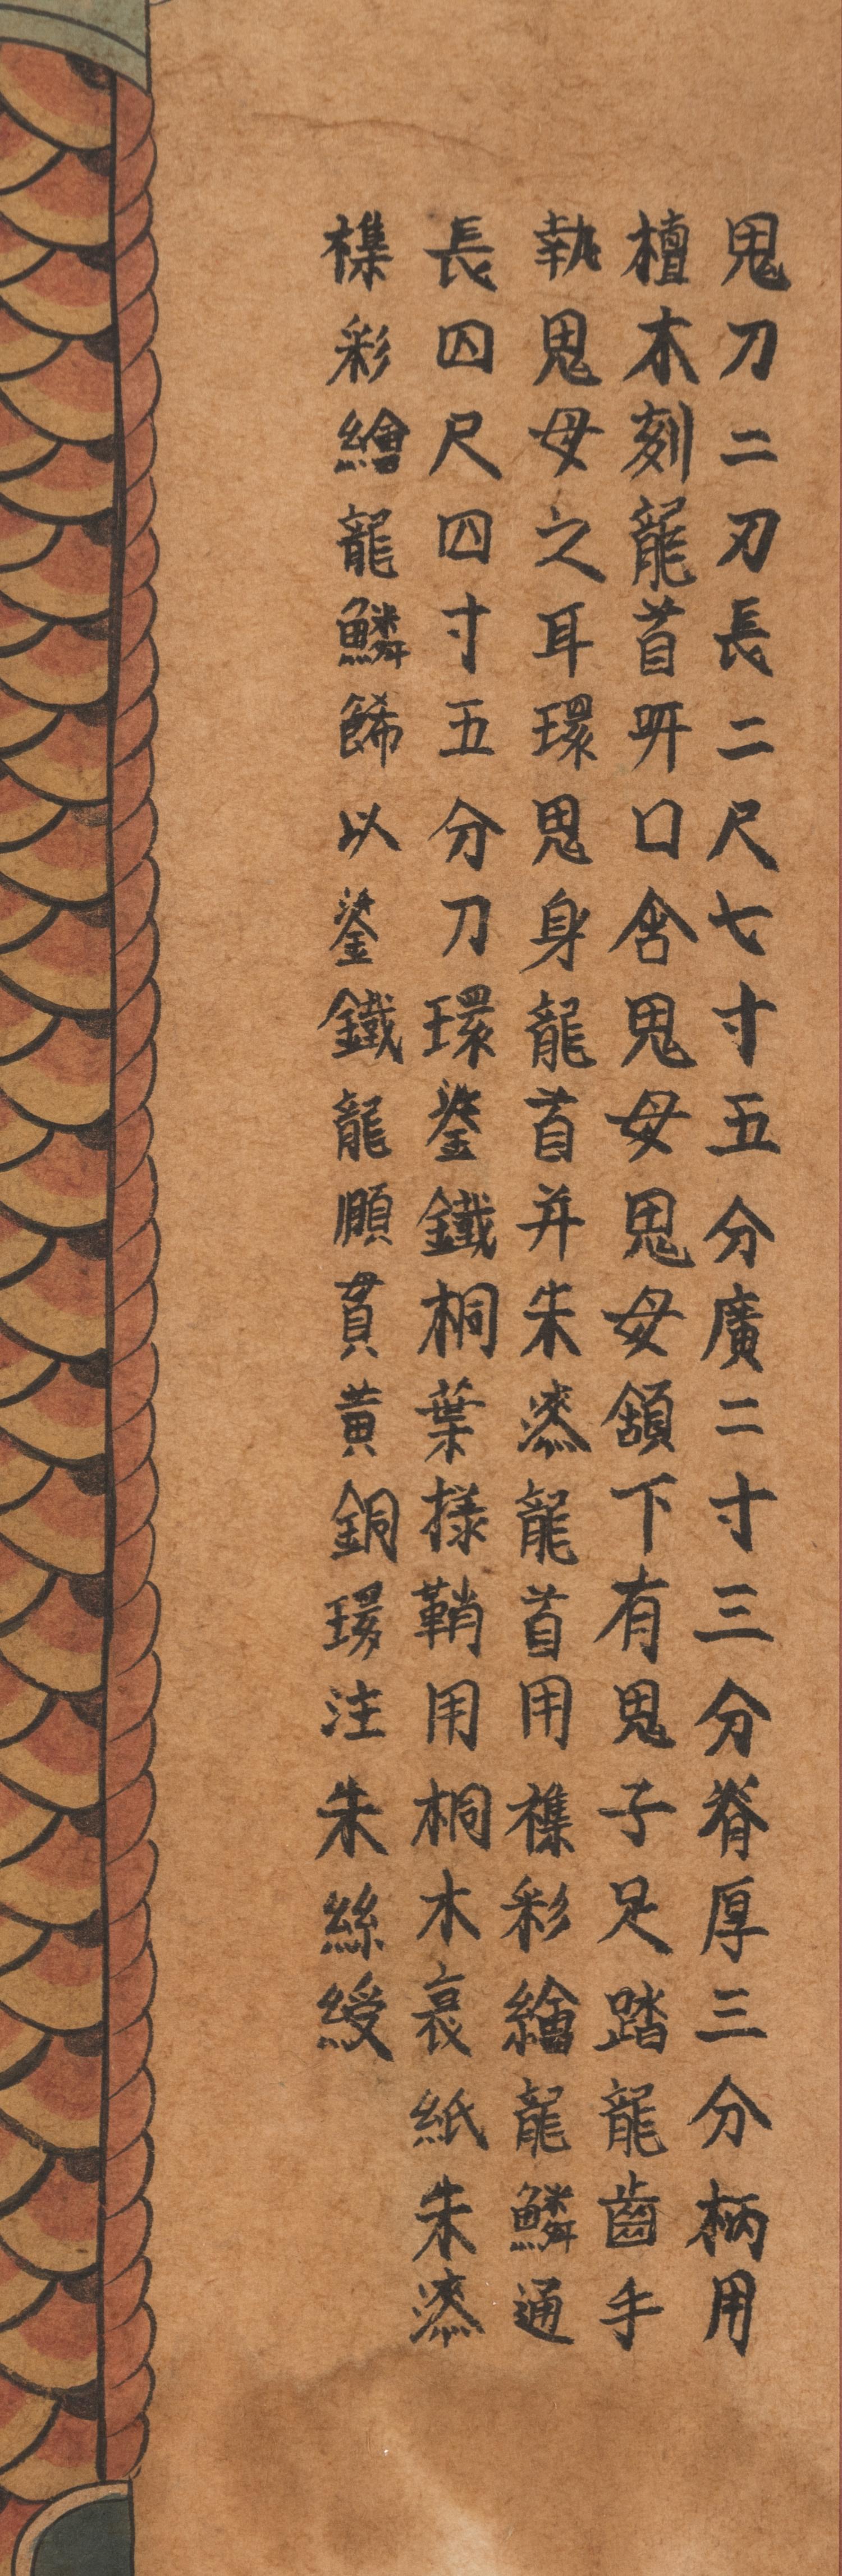 鬼刀二刃長二尺七寸五分廣二寸三分脊厚三分柄用
檀木刻龍首開口含鬼母鬼母頷下有鬼子足踏龍齒手
執鬼母之耳環鬼身龍首并朱漆龍首用襍彩繪龍鱗通
長四尺四寸五分刀環鋈鐵桐葉樣鞘用桐木裹紙朱漆
襍彩繪龍鱗餙以鋈鐵龍頭貫黄銅環注朱絲綬